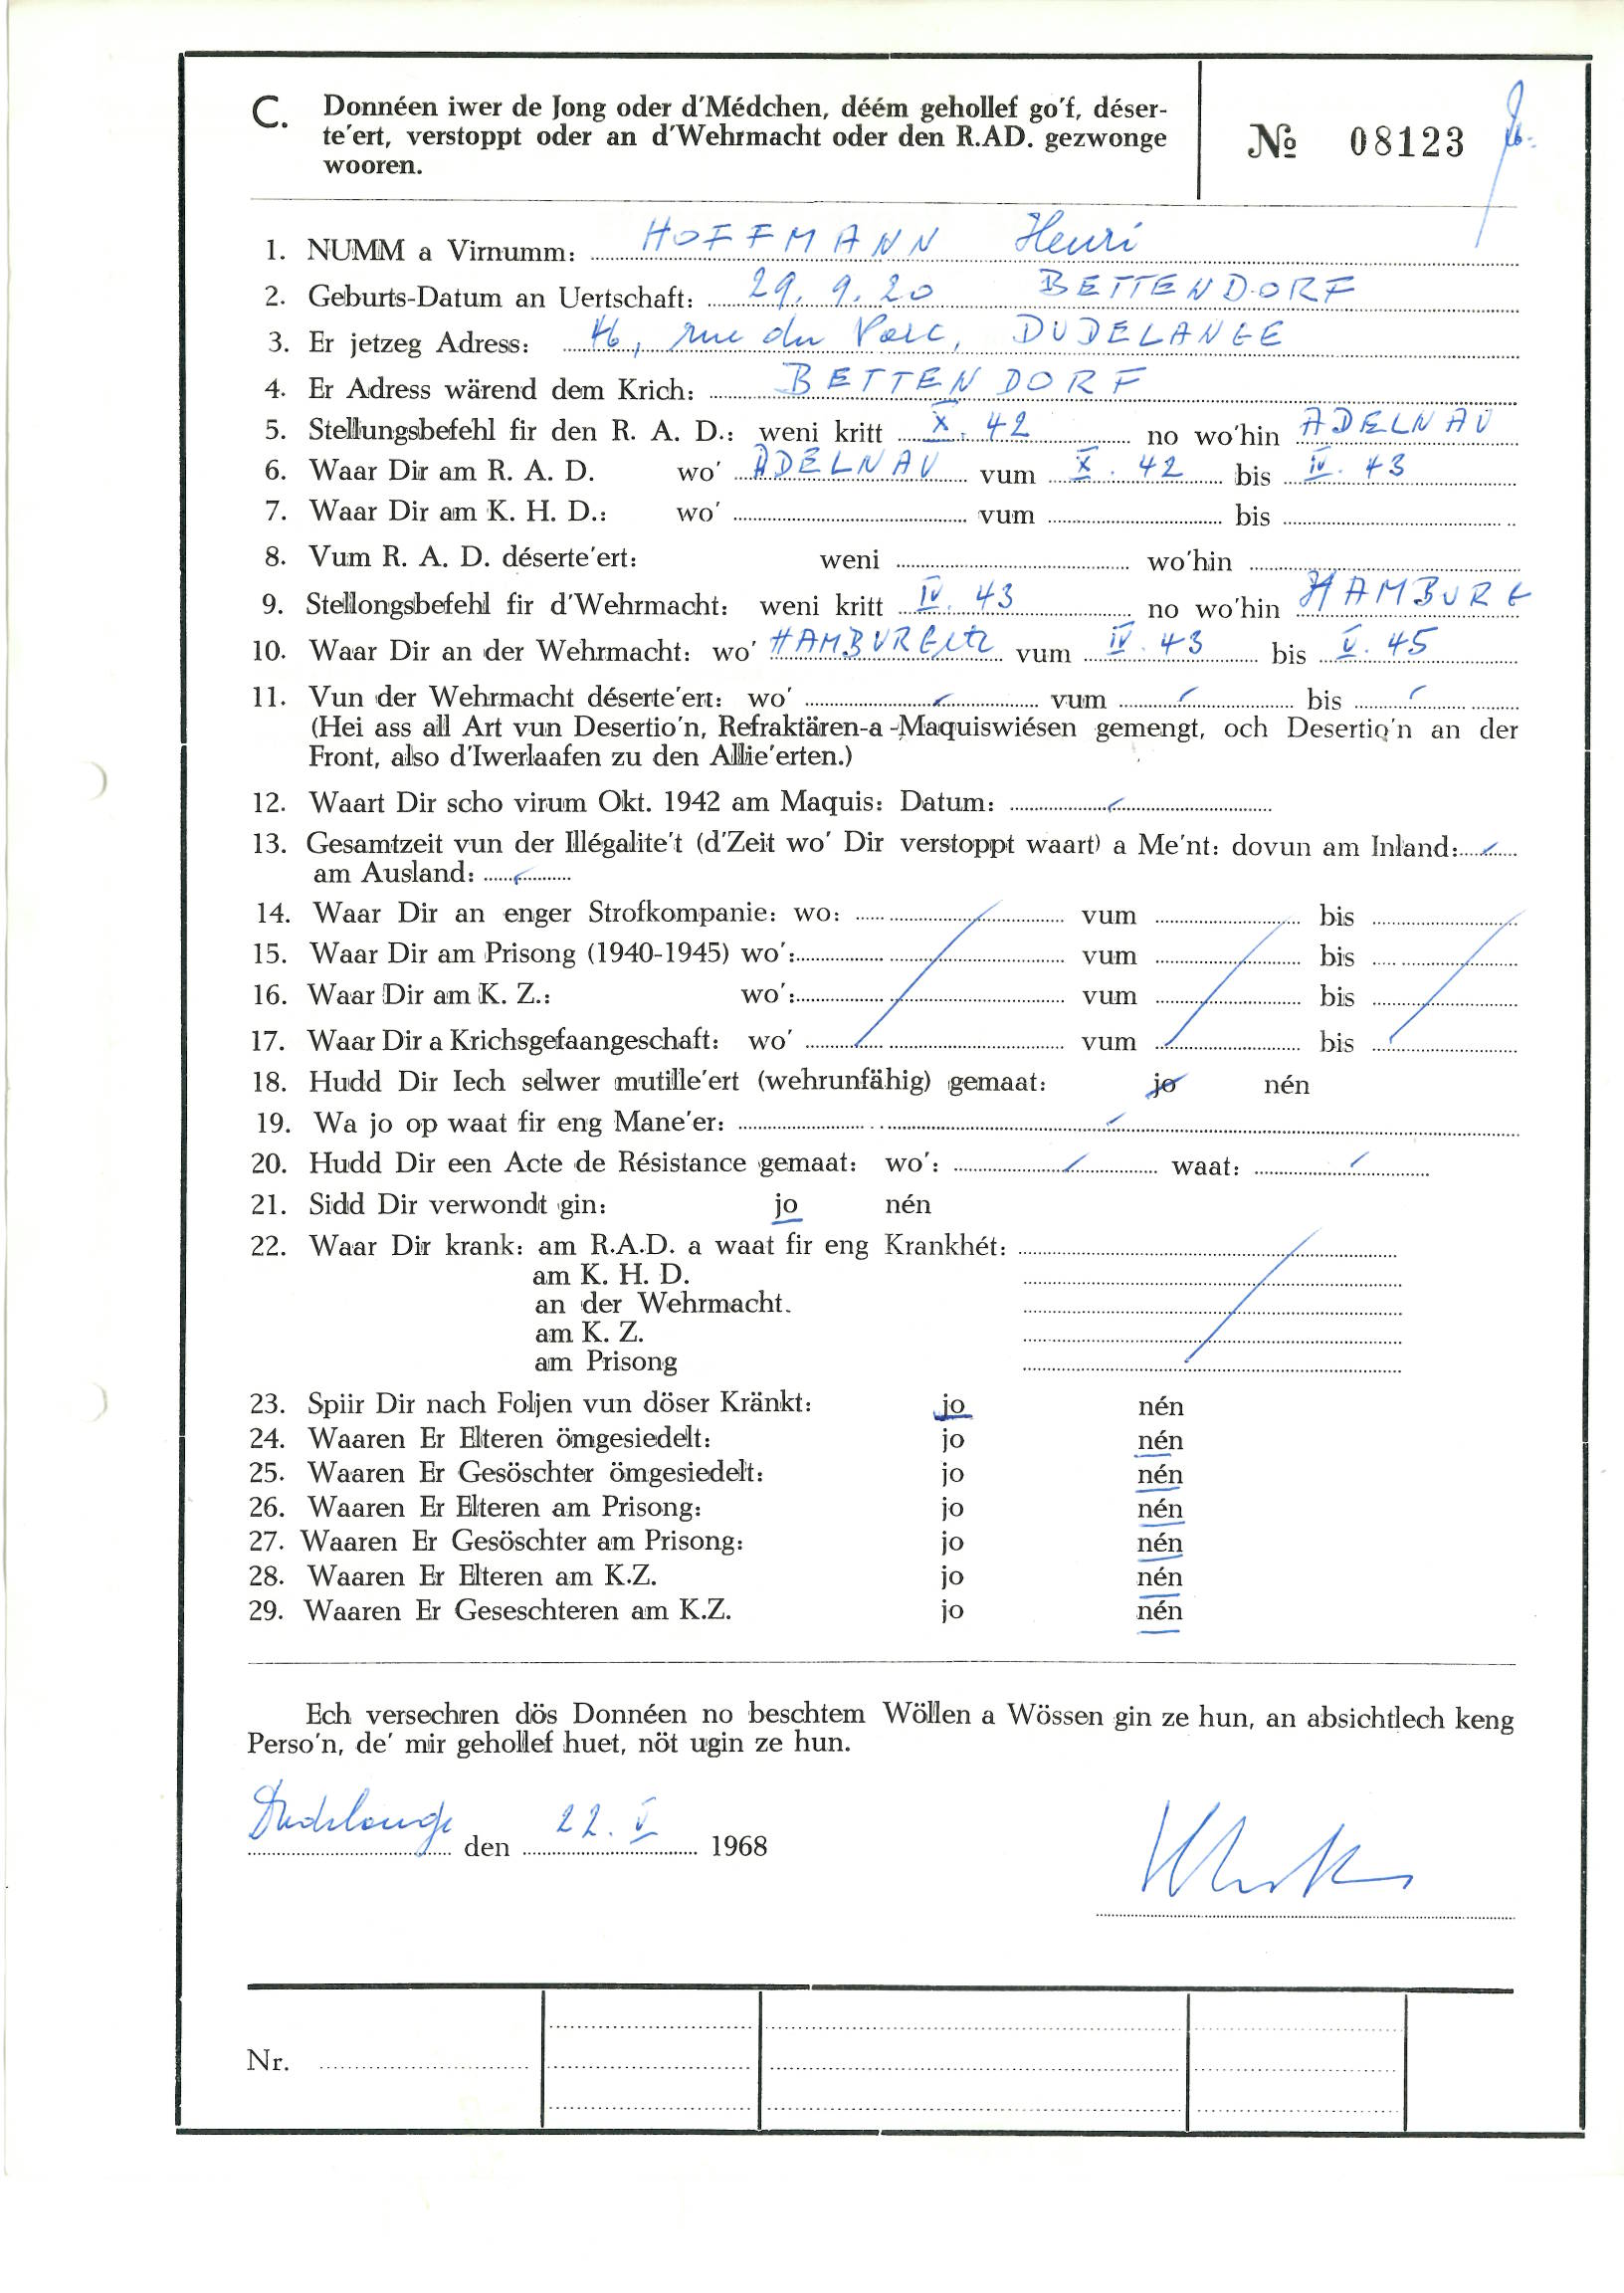 C. Donnéen iwer de Jong oder d'Médchen, déém gehollef go'f, déser-
te'ert, verstoppt oder an d'Wehrmacht oder den R.AD. gezwonge
wooren.
№ 08123
1. NUMM a Virnumm: HOFFMANN Henri
2. Geburts-Datum an Uertschaft: 29. 9. 20 BETTENDORF
3. Er jetzeg Adress: rue du Parc, DUDELANGE
4. Er Adress wärend dem Krich: BETTENDORF
5. Stellungsbefehl fir den R. A. D.: weni kritt X. 42 no wo'hin ADELNAU
6. Waar Dir am R. A. D. wo' ADELNAU vum X. 42 bis IV. 43
7. Waar Dir am K. H. D.: wo' vum bis
8. Vum R. A. D. déserte'ert: weni wo'hin
9. Stellongsbefehl fir d'Wehrmacht: weni kritt IV. 43 no wo'hin HAMBURG
10. Waar Dir an der Wehrmacht: wo' HAMBURG etc vum IV. 43 bis V. 45
11. Vun der Wehrmacht déserte'ert: wo' vum bis
(Hei ass all Art vun Desertio'n, Refraktären-a -Maquiswiésen gemengt, och Desertio'n an der
Front, also d'Iwerlaafen zu den Allie'erten.)
12. Waart Dir scho virum Okt. 1942 am Maquis: Datum:
13. Gesamtzeit vun der Illégalite't (d'Zeit wo' Dir verstoppt waart) a Me'nt: dovun am Inland:
am Ausland:
14. Waar Dir an enger Strofkompanie: wo: vum bis
15. Waar Dir am Prisong (1940-1945) wo': vum bis
16. Waar Dir am K. Z.: wo': vum bis
17. Waar Dir a Krichsgefaangeschaft: wo' vum bis
18. Hudd Dir Iech selwer mutille'ert (wehrunfähig) gemaat: jo nén
19. Wa jo op waat fir eng Mane'er:
20. Hudd Dir een Acte de Résistance gemaat: wo': waat:
21. Sidd Dir verwondt gin: jo nén
22. Waar Dir krank: am R.A.D. a waat fir eng Krankhét:
am K. H. D.
an der Wehrmacht.
am K. Z.
am Prisong
23. Spiir Dir nach Foljen vun döser Kränkt: jo nén
24. Waaren Er Elteren ömgesiedelt: jo nén
25. Waaren Er Gesöschter ömgesiedelt: jo nén
26. Waaren Er Elteren am Prisong: jo nén
27. Waaren Er Gesöschter am Prisong: jo nén
28. Waaren Er Elteren am K.Z. jo nén
29. Waaren Er Geseschteren am K.Z. jo nén
Ech versechren dös Donnéen no beschtem Wöllen a Wössen gin ze hun, an absichtlech keng
Perso'n, de' mir gehollef huet, nöt ugin ze hun.
Dudelange den 22. V 1968
Nr.